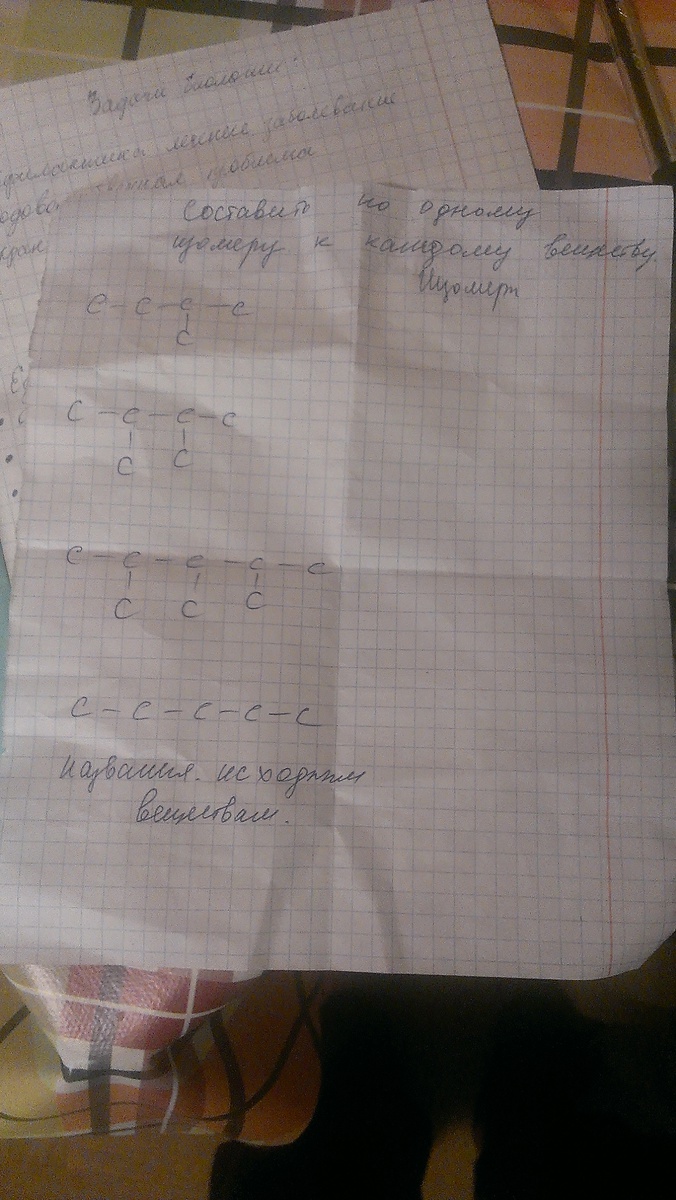 Задачи биологии:
лечение заболевание
проблема
Составить по одному
изомеру к каждому веществу.
Изомеры
C – C – C – C
|
C
C – C – C – C
| |
C C
C – C – C – C – C
| | |
C C C
C – C – C – C – C
Названия исходным
веществам.